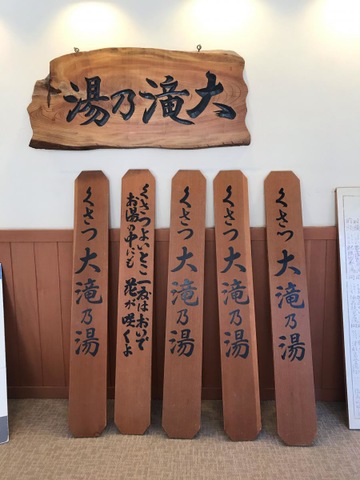 大滝乃湯
くさつ 大滝乃湯
くさつ 大滝乃湯
くさつ 大滝乃湯
くさつよいとこ 一度はおいで
お湯の中にも 花が咲くよ
くさつ 大滝乃湯